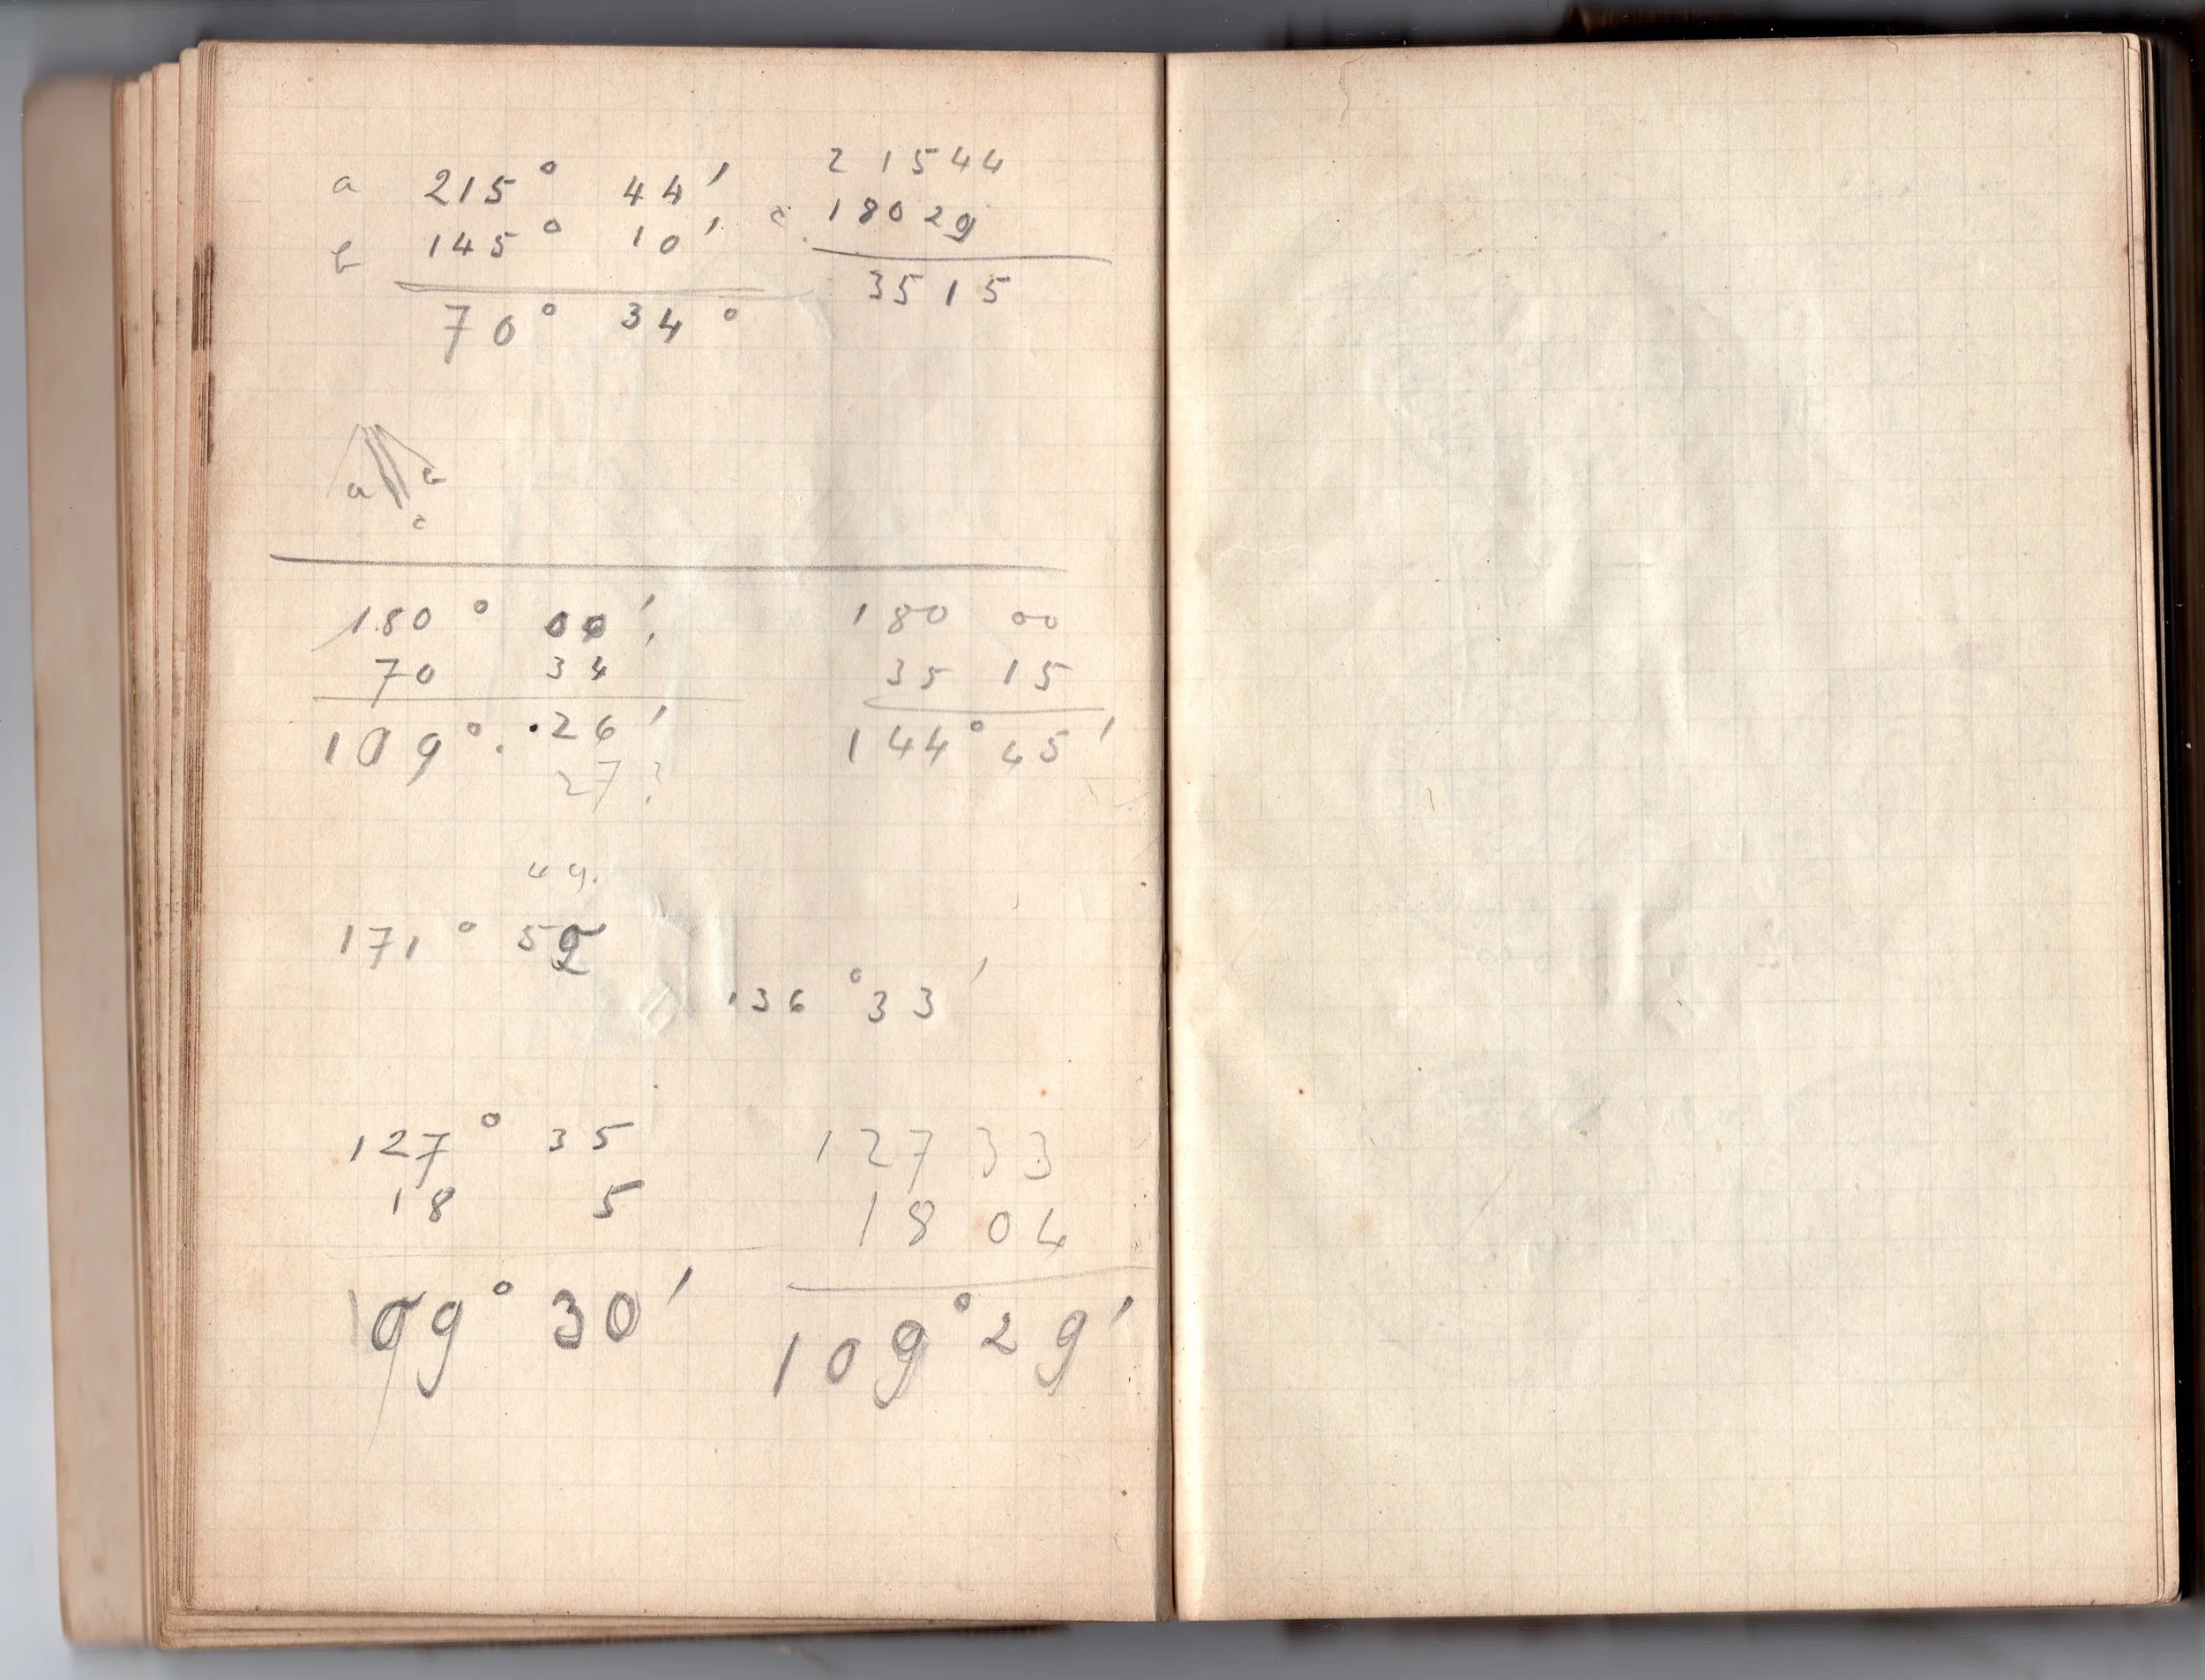 a 215° 44' 21544
b 145° 10' c. 18029
70° 34° 3515
a b
c
180° 00' 180 00
70 34 35 15
109° 26' 144° 45'
27?
49.
171° 52
136° 33'
127° 35 127 33
18 5 18 04
109° 30' 109° 29'